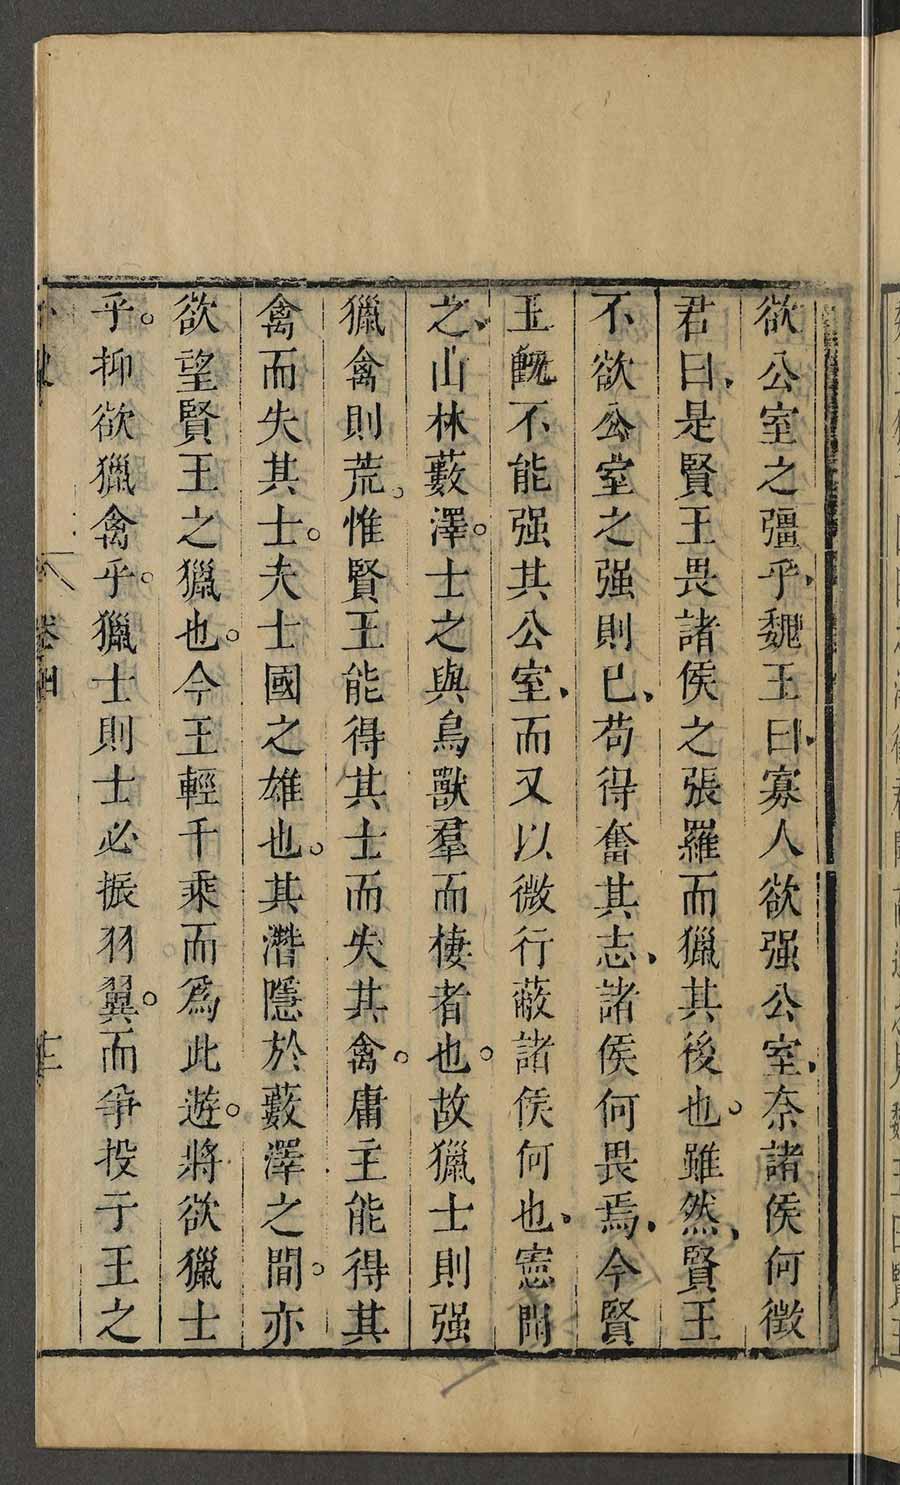 欲公室之彊乎魏王曰寡人欲强公室奈諸侯何徵
君曰是賢王畏諸侯之張羅而獵其後也。雖然賢王
不欲公室之强則已苟得奮其志諸侯何畏焉今賢
王旣不能强其公室而又以微行蔽諸侯何也憲聞
之山林藪澤。士之與鳥獸羣而棲者也。故獵士則强
獵禽則荒。惟賢王能得其士而失其禽。庸主能得其
禽而失其士。夫士國之雄也。其潛隱於藪澤之間。亦
欲望賢王之獵也。今王輕千乘而爲此遊。將欲獵士
乎。抑欲獵禽乎。獵士則士必振羽翼。而爭投于王之
卷四